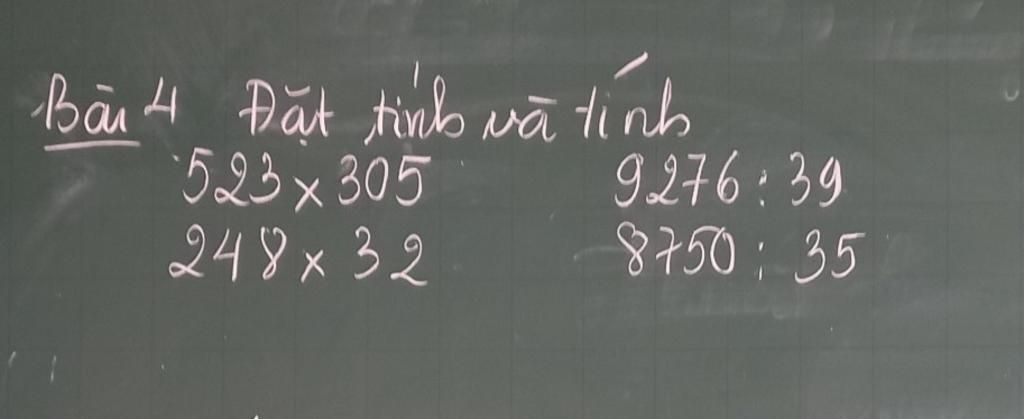 Bài 4 Đặt tính và tính
523 x 305 9276 : 39
248 x 32 8750 : 35